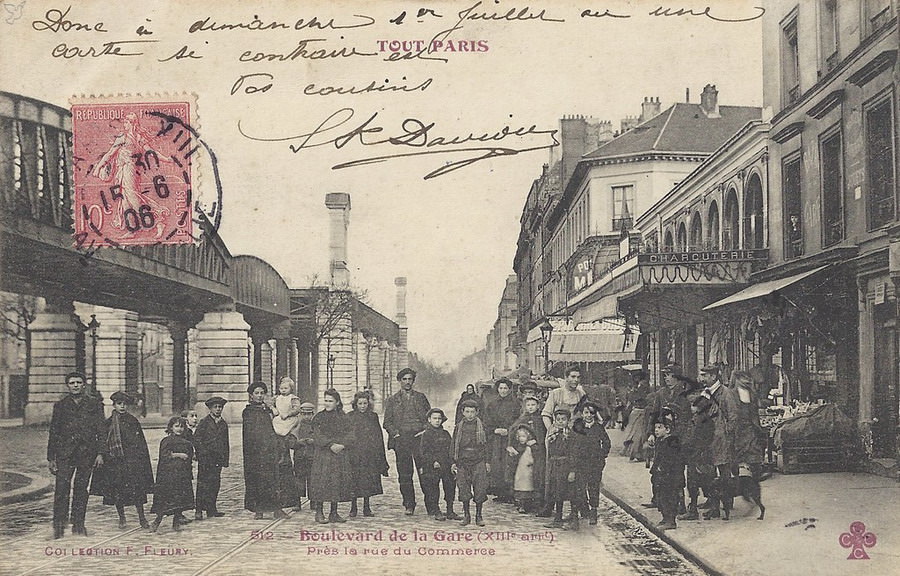 Donc à dimanche 1er Juillet ou une
carte si contraire est
TOUT PARIS
Vos cousins
RÉPUBLIQUE FRANÇAISE
10
30
15-6
06
CHARCUTERIE
COLLECTION F. FLEURY.
512 - Boulevard de la Gare (XIIIe arrt)
Près la rue du Commerce